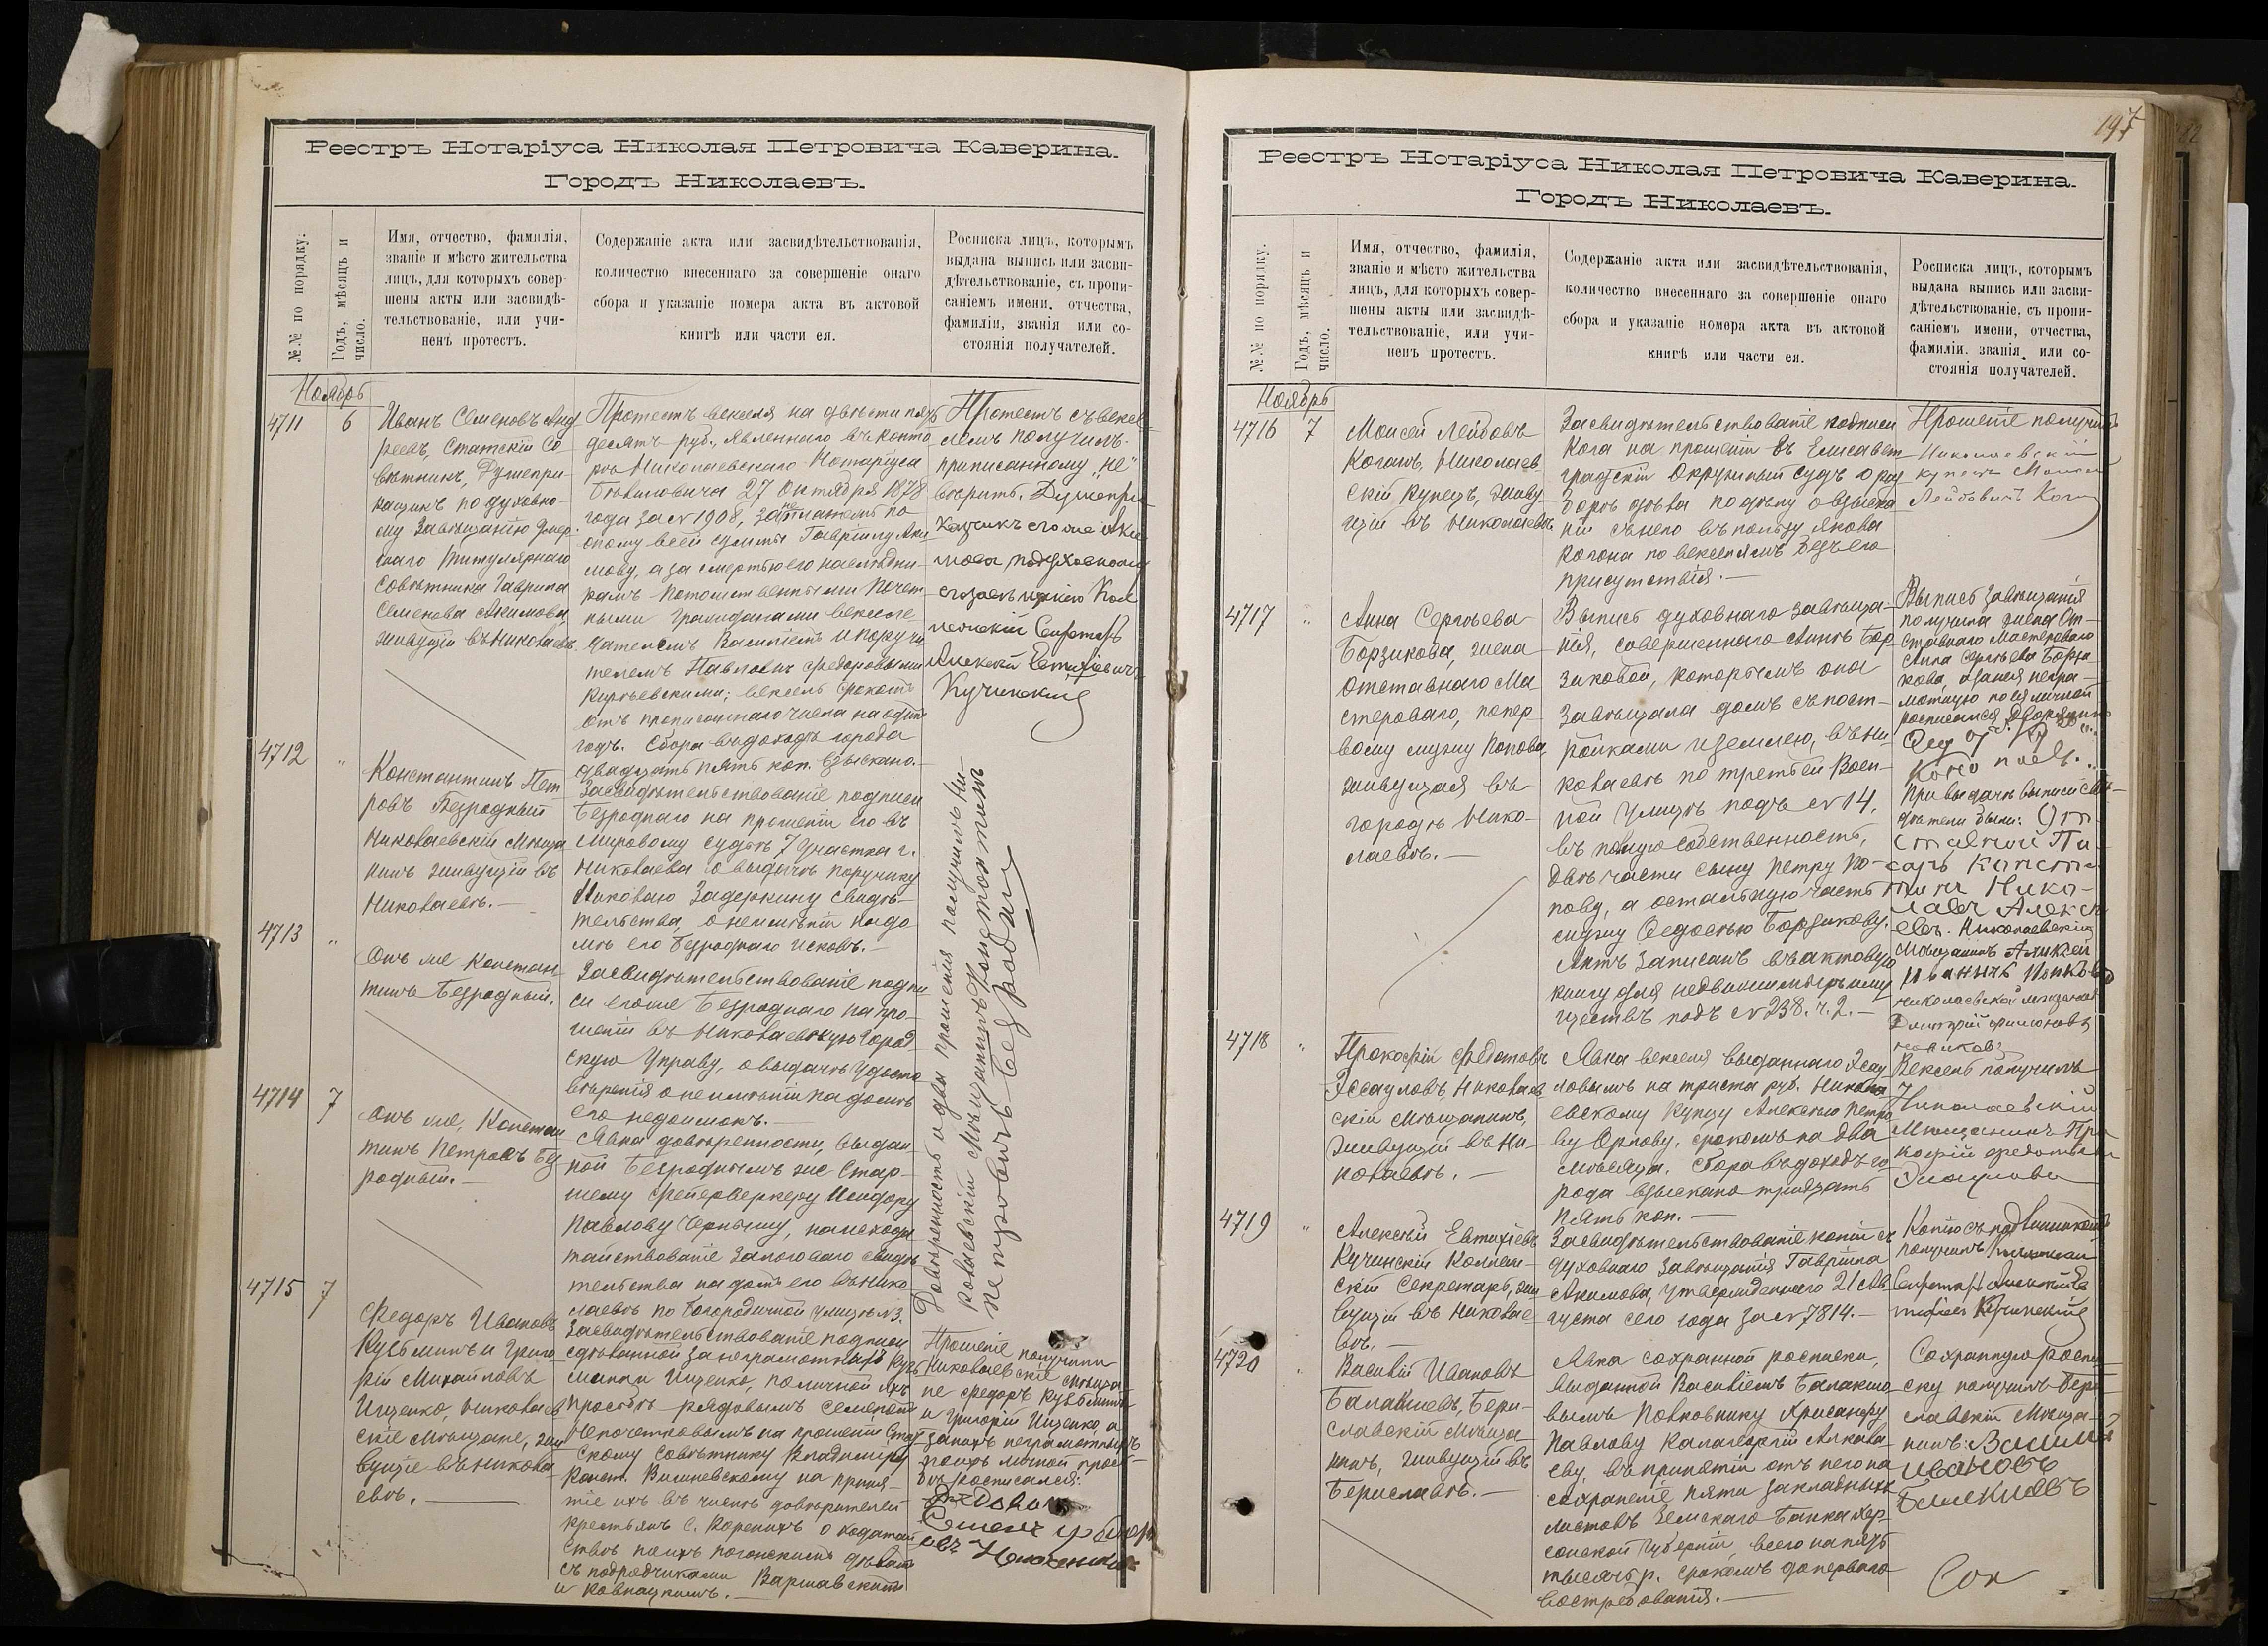 Реестръ Нотаріуса Николая Петровича Каверина.
Городъ Николаевъ.
№№ по порядку.
Годъ, мѣсяцъ и
число.
Имя, отчество, фамилія,
званіе и мѣсто жительства
лицъ, для которыхъ совер-
шены акты или засвидѣ-
тельствованіе, или учи-
ненъ протестъ.
Содержаніе акта или засвидѣтельствованія,
количество внесеннаго за совершеніе онаго
сбора и указаніе номера акта въ актовой
книгѣ или части ея.
Росписка лицъ, которымъ
выдана выпись или засви-
дѣтельствованіе, съ пропи-
саніемъ имени, отчества,
фамиліи, званія или со-
стоянія получателей.
Ноябрь
4711
6
Иванъ Семеновъ Анд
реевъ, Статскій Со
вѣтникъ, Душепри-
кащикъ по духовно-
му завѣщанію умер-
шаго Титулярнаго
Совѣтника Гавриила
Семенова Акимова,
живущій въ Николаевѣ.
Протестъ векселя на двѣсти пять
десятъ руб., явленнаго въ конто
рѣ Николаевскаго Нотаріуса
27 Октября 1878
года за № 1908, за неплатежъ по
оному всей суммы Гавріилу Аки
мову, а за смертью его наслѣдни-
камъ Потомственными Почет
ными Гражданами векселе
дателемъ Василіемъ и поручи
телемъ Павломъ Федоровыми
Кирьевскими; вексель срокомъ
отъ прописаннаго числа на одинъ
годъ. Сбора въ доходъ города
двадцать пять коп. взыскано.
Протестъ съ вексе
лемъ получилъ.
приписанному „не“
вѣрить. Душепри
кащикъ
Секретарь
Алексѣй Евтихіевичъ
Кучинскій
4712
"
Константинъ Пет
ровъ Безродный
Николаевскій Мѣща
нинъ живущій въ
Николаевѣ.
Засвидѣтельствованіе подписи
Безроднаго на прошеніи его въ
Мировому Судьѣ 7 участка г.
Николаева о выдачѣ поручику
Николаю Задеркину Свидѣ-
тельства, о неимѣніи на до
мѣ его Безроднаго исковъ.
4713
"
Онъ же Констан-
тинъ Безродный.
Засвидѣтельствованіе подпи
си его же Безроднаго на про-
шеніи въ Николаевскую Город
скую Управу, о выдачѣ удосто
вѣренія о неимѣніи на домѣ
его недоимокъ.
4714
7
Онъ же, Констан
тинъ Петровъ Без
родный.
Явка довѣренности, выдан
ной Безроднымъ же Стар-
шему Фейерверкеру Исидору
Павлову Черныш, на исхода
тайствованіе залоговаго свидѣ
тельства на домъ его въ Нико
лаевѣ по Богородичной улицѣ № 3.
Довѣренность и два прошенія получилъ Ни-
колаевскій Мѣщанинъ Константинъ
Петровичъ Безродный
4715
7
Федоръ Ивановъ
Кузьминъ и Григо
рій Михайловъ
Ищенко, Николаев
скіе Мѣщане, жи
вущіе въ Никола
евѣ.
Засвидѣтельствованіе подписи
сдѣланной за неграмотныхъ Кузь
мина и Ищенко, по личной ихъ
просьбѣ рядовымъ Семеномъ
на прошеніи Стат
скому Совѣтнику Владиміру
Конст. Вишневскому на приня-
тіе ихъ въ число довѣрителей
крестьянъ с. Кореницъ о ходатай
ствѣ
съ подрядчиками Варшавскимъ
и
Прошеніе получили
Николаевскіе мѣща
не Федоръ Кузьминъ
и Григорій Ищенко, а
за нихъ неграмотныхъ
по ихъ личной прось-
бѣ росписался:
Рядовой
Семенъ
197
Реестръ Нотаріуса Николая Петровича Каверина.
Городъ Николаевъ.
№№ по порядку.
Годъ, мѣсяцъ и
число.
Имя, отчество, фамилія,
званіе и мѣсто жительства
лицъ, для которыхъ совер-
шены акты или засвидѣ-
тельствованіе, или учи-
ненъ протестъ.
Содержаніе акта или засвидѣтельствованія,
количество внесеннаго за совершеніе онаго
сбора и указаніе номера акта въ актовой
книгѣ или части ея.
Росписка лицъ, которымъ
выдана выпись или засви-
дѣтельствованіе, съ пропи-
саніемъ имени, отчества,
фамиліи, званія или со-
стоянія получателей.
Ноябрь
4716
7
Моисей Лейбовъ
Коганъ, Николаев
скій Купецъ, живу-
щій въ Николаевѣ
Засвидѣтельствованіе подписи
Кога на прошеніи въ Елисавет
градскій Окружный Судъ о раз
борѣ дѣла по дѣлу о взыска
ніи съ него въ пользу Якова
Когона по векселямъ безъ его
присутствія.
Прошеніе получилъ
Николаевскій
купецъ Моисей
Лейбовичъ Коган
4717
"
Анна Сергѣева
Борзикова, жена
отставнаго Ма
стероваго, попер
вому мужу Попова,
живущая въ
городѣ Нико-
лаевѣ.
Выпись духовнаго завѣща-
нія, совершеннаго Анной Бор
зиковой, которымъ она
завѣщала домъ съ пост-
ройками и землею, въ Ни-
колаевѣ по третьей Воен-
ной улицѣ подъ № 14,
въ полную собственность,
двѣ части сыну Петру По-
пову, а остальную часть
мужу Федосѣю Борзикову.
Актъ записанъ въ актовую
книгу для недвижимыхъ иму
ществъ подъ № 238. ч. 2.
Выпись завѣщанія
получила жена От-
ставнаго Мастероваго
Анна Сергѣева Борзи-
кова, а за нея негра-
мотную по ея личной
росписался Дворянинъ
При выдачѣ выписи сви-
дѣтели были: От-
ставной Пи-
сарь Конста
тинъ Нико-
лаевъ Алексѣ
евъ. Николаевскій
Мѣщанинъ Аликсей
Иванычъ Попковъ
Николаевской мѣщанинъ
Дмитрій Филимоновъ
Новиковъ
4718
"
Прокофій Федотовъ
Эссауловъ Николаев
скій Мѣщанинъ,
живущій въ Ни-
колаевѣ.
Явка векселя выданнаго Эсау
ловымъ на триста руб. Никола
евскому Купцу Алексѣю Петро
ву Орлову, срокомъ на два
мѣсяца. Сбора въ доходъ го
рода взыскано тридцать
пять коп.
Вексель получилъ
Николаевскій
Мѣщанинъ Про
кофій Федотовъ
Эсауловъ
4719
"
Алексѣй Евтихіевъ
Кучинскій Коллеж-
скій Секретарь, жи
вущій въ Николае-
вѣ.
Засвидѣтельствованіе копіи съ
духовнаго завѣщанія Гавріила
Акимова, утвержденнаго 21 Ав
густа сего года за № 7814.
Копію съ подлинникомъ
получилъ Коллежскій
Секретарь Алексѣй Ев
тихіевъ Кучинскій
4720
Василій Ивановъ
Балакшевъ, Бери-
славскій Мѣща-
нинъ, живущій въ
Бериславѣ.
Явка сохранной росписки,
выданной Василіемъ Балакше
вымъ Полковнику Александру
Павлову
еву, въ принятіи отъ него на
сохраненіе пяти закладныхъ
листовъ Земскаго Банка Хер-
сонской Губерніи, всего на пять
тысячъ р. срокомъ до перваго
востребованія.
Сохранную роспи-
ску получилъ Бери-
славскій Мѣща-
нинъ: Василій
Ивановъ